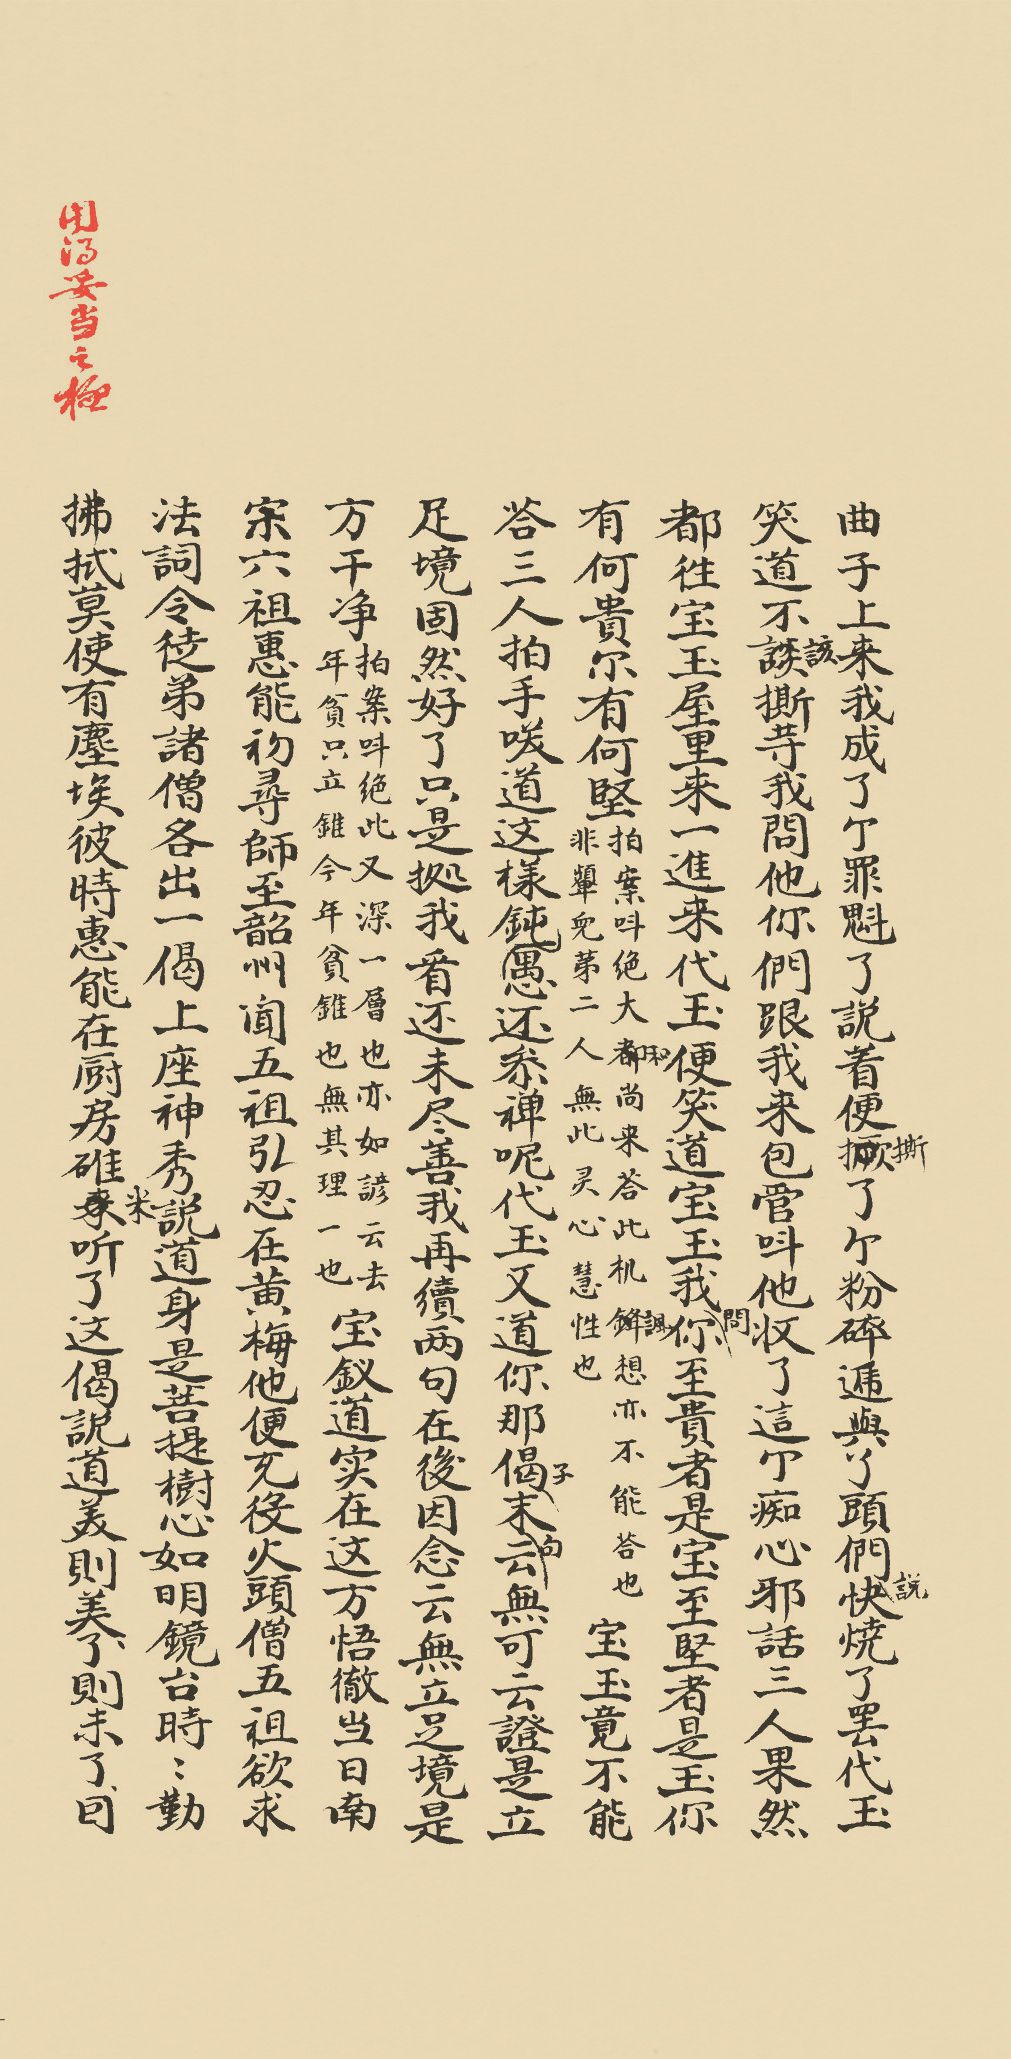 曲子上来我成了个罪魁了説着便撕了个粉碎遞與丫頭們説快燒了罢代玉
笑道不該撕等我問他你們跟我来包管叫他收了這个痴心邪話三人果然
都往宝玉屋里来一進来代玉便笑道宝玉我問你至貴者是宝至堅者是玉你
有何貴尔有何堅
拍案叫绝大和尚来荅此机鋒想亦不能荅也
非顰兒苐二人無此灵心慧性也
宝玉竟不能
荅三人拍手咲道这樣鈍愚还参禅呢代玉又道你那偈子末句云無可云證是立
足境固然好了只是拠我看还未尽善我再續两句在後因念云無立足境是
方干净
拍案叫绝此又深一層也亦如諺云去
年貧只立錐今年貧錐也無其理一也
宝釵道实在这方悟徹当日南
宗六祖惠能初尋師至韶州闻五祖引忍在黄梅他便充役火頭僧五祖欲求
法詞令徒弟諸僧各出一偈上座神秀説道身是菩提樹心如明鏡台時〻勤
拂拭莫使有塵埃彼時惠能在厨房碓米听了这偈説道美則美了則未了因
用得妥当之極